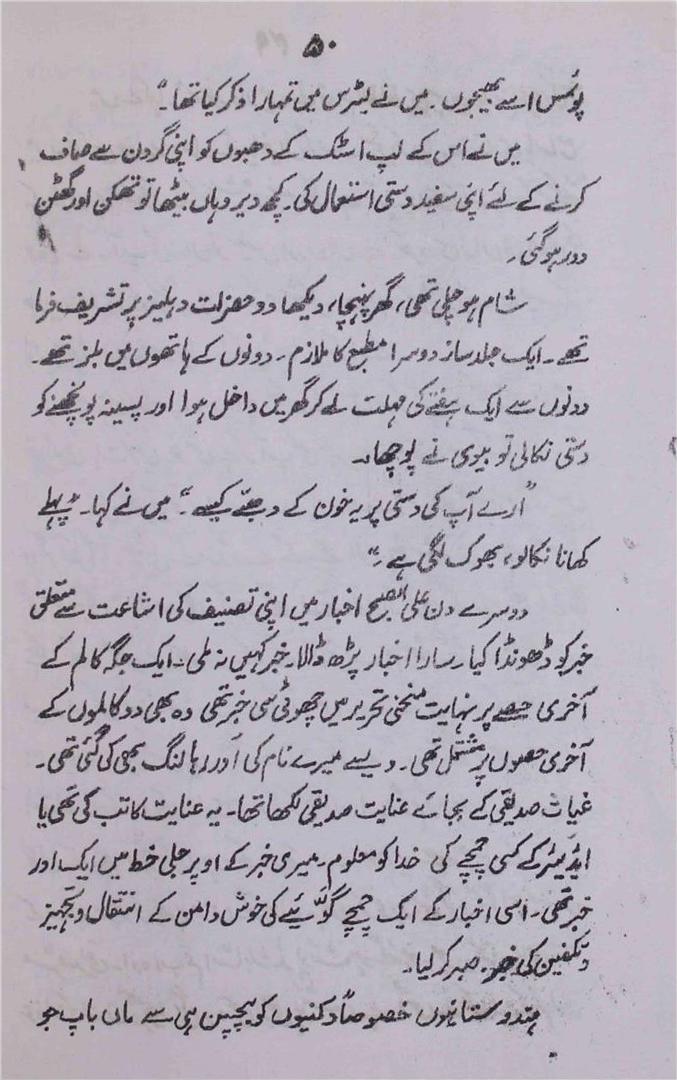 ۵۰
پوئمس اسے بھیجوں۔ میں نے لیٹرس میں تمہارا ذکر کیا تھا۔"
میں نے اس کے لپ اسٹک کے دھبوں کو اپنی گردن سے صاف
کرنے کے لئے اپنی سفید دستی استعمال کی۔ کچھ دیر وہاں بیٹھا تو تھکن اور گھٹن
دور ہو گئی۔
شام ہو چلی تھی، گھر پہنچا، دیکھا دو حضرات دہلیز پر تشریف فرما
تھے۔ ایک جلد ساز دوسرا مطبع کا ملازم۔ دونوں کے ہاتھوں میں بلز تھے۔
دونوں سے ایک ہفتے کی مہلت لے کر گھر میں داخل ہوا اور پسینہ پونچھنے کو
دستی نکالی تو بیوی نے پوچھا۔
"ارے آپ کی دستی پر یہ خون کے دھبے کیسے۔" میں نے کہا۔ "پہلے
کھانا نکالو، بھوک لگی ہے۔"
دوسرے دن علی الصبح اخبار میں اپنی تصنیف کی اشاعت سے متعلق
خبر کو ڈھونڈا کیا۔ سارا اخبار پڑھ ڈالا۔ خبر کہیں نہ ملی۔ ایک جگہ کالم کے
آخری حصے پر نہایت منحنی تحریر میں چھوٹی سی خبر تھی وہ بھی دو کالموں کے
آخری حصوں پر مشتمل تھی۔ ویسے میرے نام کی اوررہالنگ بھی کی گئی تھی۔
غیاث صدیقی کے بجائے عنایت صدیقی لکھا تھا۔ یہ عنایت کاتب کی تھی یا
ایڈیٹر کے کسی چمچے کی خدا کو معلوم۔ میری خبر کے اوپر جلی خط میں ایک اور
خبر تھی۔ اسی اخبار کے ایک چمچے گویّئے کی خوش دامن کے انتقال و تجہیز
و تکفین کی خبر۔ صبر کر لیا۔
ہندوستانیوں خصوصاً دکنیوں کو بچپن ہی سے ماں باپ جو